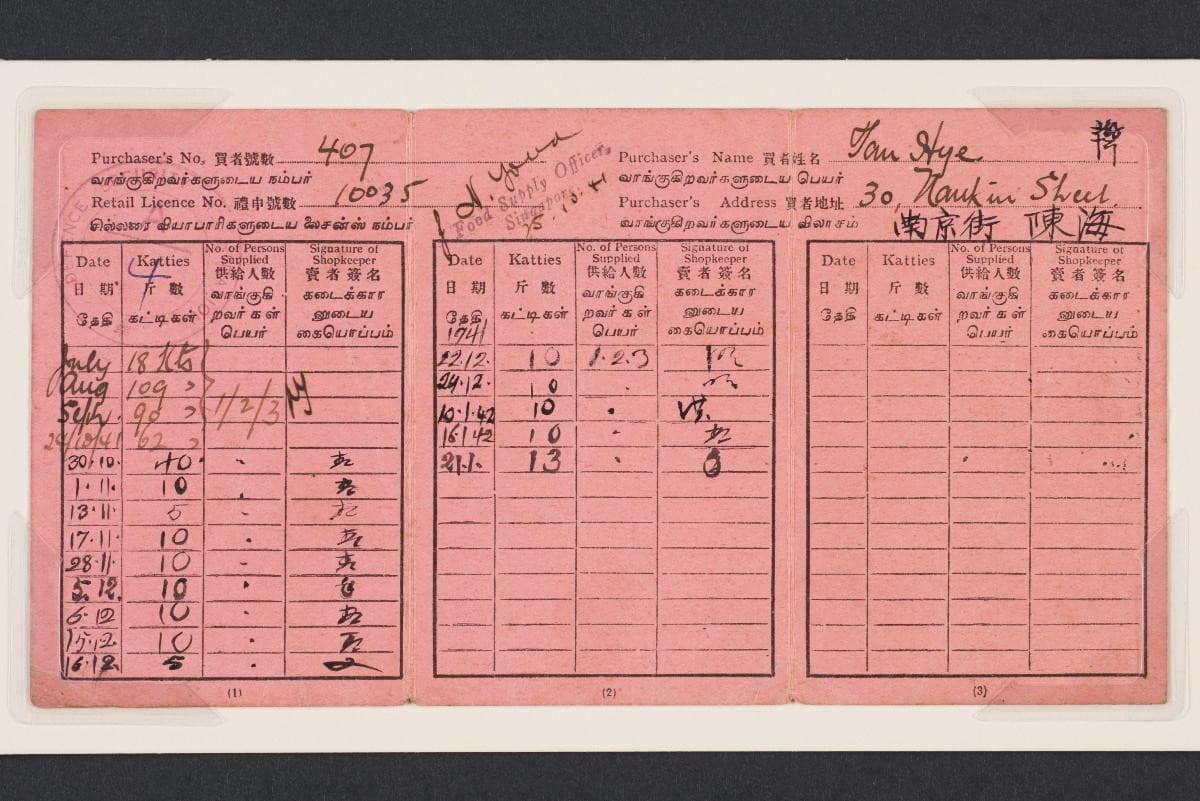 Purchaser's No. 買者號數 407
வாங்குகிறவர்களுடைய நம்பர்
Retail Licence No. 禮申號數 10035
சில்லரை வியாபாரிகளுடைய லைசன்ஸ் நம்பர்
Food Supply Officer,
Singapore.
Purchaser's Name 買者姓名 Tan Hye.
வாங்குகிறவர்களுடைய பெயர்
Purchaser's Address 買者地址 30, Nankin Street.
வாங்குகிறவர்களுடைய விலாசம் 南京街 陳海
Date Katties No. of Persons Supplied Signature of Shopkeeper
日期 斤數 供給人數 賣者簽名
தேதி கட்டிகள் வாங்குகிறவர்கள் பெயர் கடைக்காரனுடைய கையொப்பம்
July 18
Aug 109 "
90 " 1/2/3
62 "
30.10. 10
1.11. 10
13.11. 5
17.11. 10
28.11. 10
5.12. 10
6.12 10
15.12. 10
16.12. 5
(1)
Date Katties No. of Persons Supplied Signature of Shopkeeper
日期 斤數 供給人數 賣者簽名
தேதி கட்டிகள் வாங்குகிறவர்கள் பெயர் கடைக்காரனுடைய கையொப்பம்
1741
22.12. 10 1.2.3
24.12. 10
10.1.42 10
16.1.42 10
21.1. 13
(2)
Date Katties No. of Persons Supplied Signature of Shopkeeper
日期 斤數 供給人數 賣者簽名
தேதி கட்டிகள் வாங்குகிறவர்கள் பெயர் கடைக்காரனுடைய கையொப்பம்
(3)